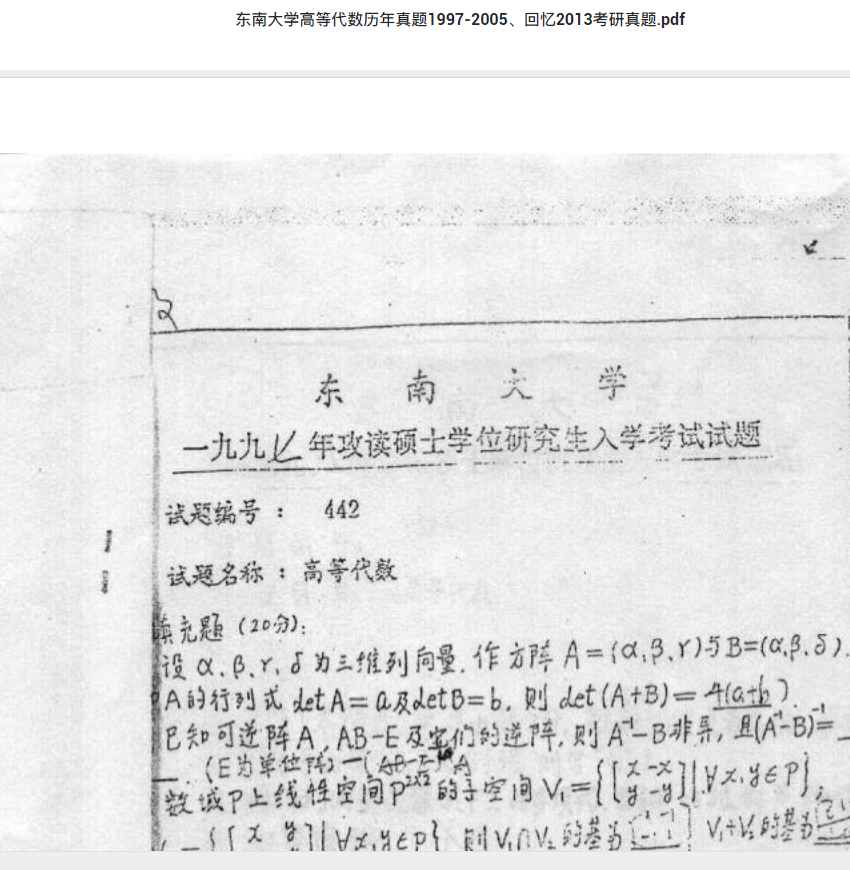 东南大学高等代数历年真题1997-2005、回忆2013考研真题.pdf
东 南 大 学
一九九 年攻读硕士学位研究生入学考试试题
试题编号 : 442
试题名称 : 高等代数
填充题 (20分):
设 α, β, γ, δ 为三维列向量, 作方阵 A = (α, β, γ) 与 B = (α, β, δ)
A 的行列式 det A = a 及 det B = b, 则 det (A+B) = 4(a+b)
已知可逆阵 A, AB-E 及它们的逆阵, 则 A⁻¹-B 非异, 且(A⁻¹-B)⁻¹=
(E为单位阵) -(AB-E)⁻¹A
数域P上线性空间P²ˣ² 的子空间 V₁ = {[x -x
y -y]|∀x,y∈P},
= {[x y
]|∀x,y∈P} 则 V₁∩V₂ 的基为 V₁+V₂ 的基为